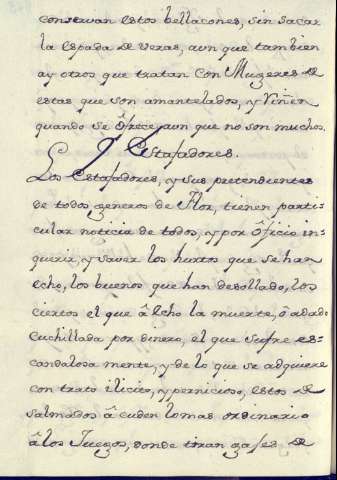 conservan estos bellacones, sin sacar
la espada de veras, aun que tambien
ay otros que tratan con Mugeres de
estas que son amantelados, y riñen
quando se ôfrece, aun que no son muchos.
Estafadores.
Los Estafadores, y sus pretendientes
de todos generos de Flor, tienen parti-
cular noticia de todos, y por ôficio in-
querir, y saver los hurtos que se han
echo, los buenos que han desollado, los
ciertos el que â echo la muerte, ô a dado
cuchillada por dinero, el que sufre es-
candalosa mente, y de lo que se adquiere
con trato ilicito, y pernicioso, estos de
salmados âcuden lo mas ordinario
â los Juegos, donde tiran gages de